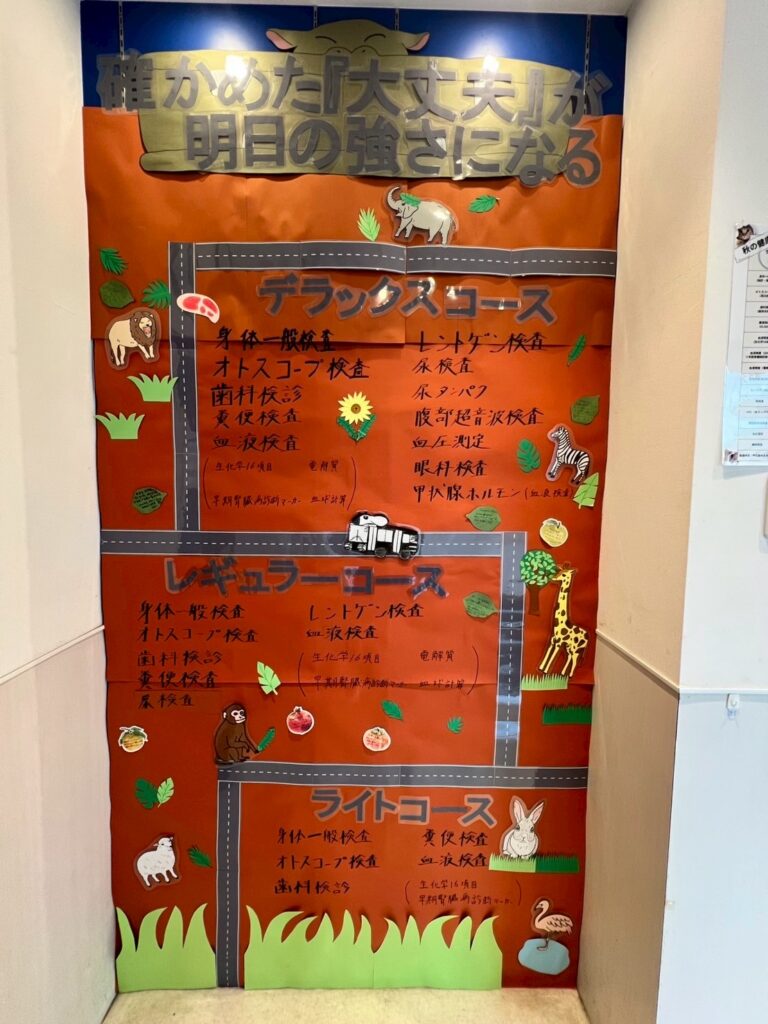 確かめた『大丈夫』が
明日の強さになる
デラックスコース
身体一般検査
オトスコープ検査
歯科検診
糞便検査
血液検査
(生化学16項目 電解質
早期腎臓病診断マーカー 血球計算)
レントゲン検査
尿検査
尿タンパク
腹部超音波検査
血圧測定
眼科検査
甲状腺ホルモン(血液検査)
レギュラーコース
身体一般検査
オトスコープ検査
歯科検診
糞便検査
尿検査
レントゲン検査
血液検査
(生化学16項目 電解質
早期腎臓病診断マーカー 血球計算)
ライトコース
身体一般検査
オトスコープ検査
歯科検診
糞便検査
血液検査
(生化学16項目
早期腎臓病診断マーカー)
秋の健康